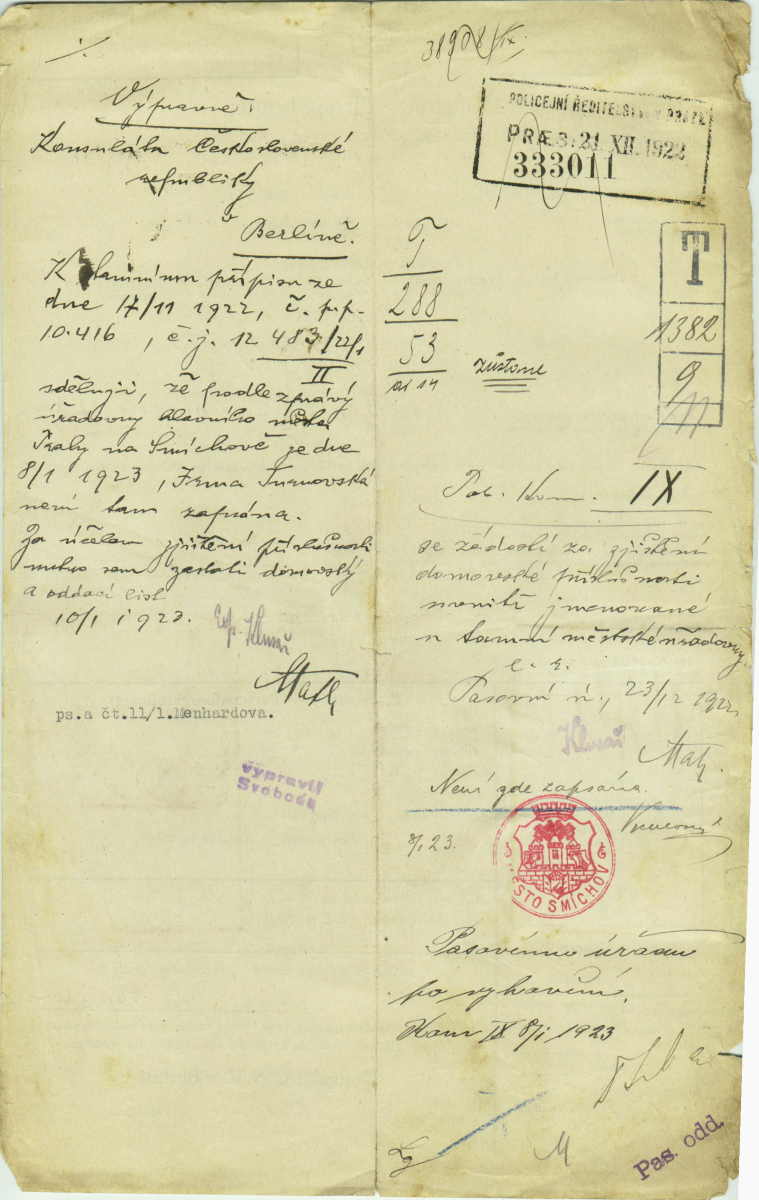 Výpravně:
Konsulátu Československé
republiky
v
Berlíně.
K tamnímu přípisu ze
dne 17/11 1922, č. p.p.
10.416, č.j. 12 483/22/1
II
sděluji, že podle zprávy
úřadovny hlavního města
Prahy na Smíchově ze dne
8/1 1923, Irma Turnovská
není tam zapsána.
Za účelem zjištění příslušnosti
nutno sem zaslati domovský
a oddací list
10/1 1923.
Exp. Klmaš
ps.a čt.11/1.Menhardova.
vypravil
Svoboda
POLICEJNÍ ŘEDITELSTVÍ V PRAZE
PRÆS. 21 XII. 1922
333011
T
288
53
zůstane
T
1382
9
11
Pol. Kom. IX
se žádostí za zjištění
domovské příslušnosti
svrchu jmenované
u tamní městské úřadovny
c. ř.
Pasovní ú., 23/12 1922
Klmaš
Není zde zapsána.
8/1 23.
MĚSTO SMÍCHOV
Pasovému úřadu
po vyhovění.
Kom IX 8/1 1923
M
Pas. odd.